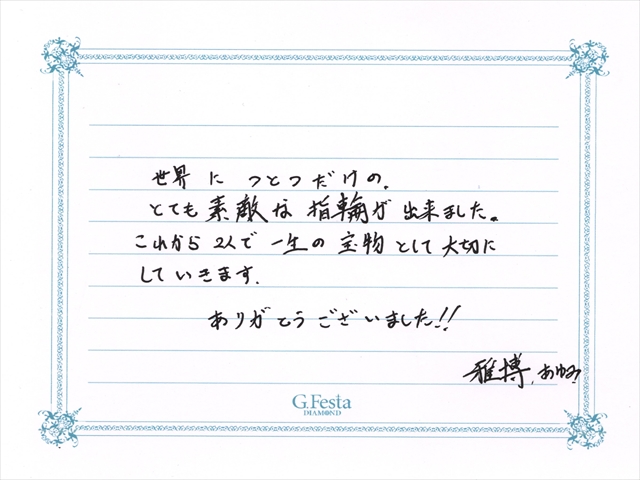 世界につとつだけの、
とても素敵な指輪が出来ました。
これから2人で一生の宝物として大切に
していきます。
ありがとうございました!!
雅博、あゆみ
G.Festa
DIAMOND